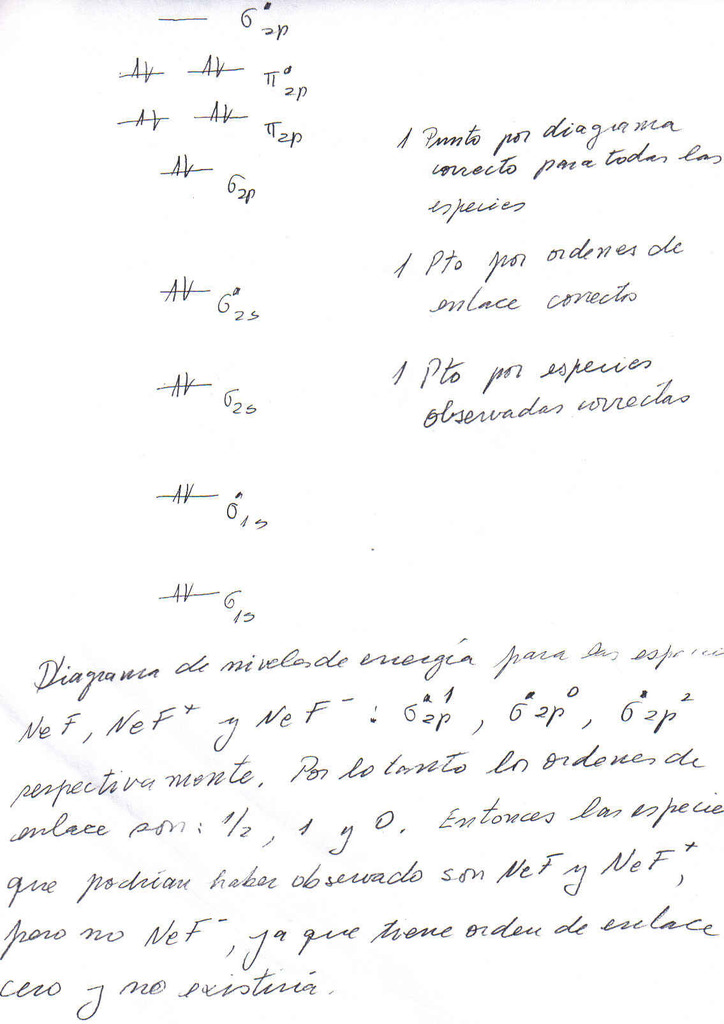 σ*2p
π*2p
π2p
σ2p
σ*2s
σ2s
σ*1s
σ1s
1 Punto por diagrama
correcto para todas las
especies
1 Pto por ordenes de
enlace correcto
1 Pto por especies
observadas correctas
Diagrama de niveles de energía para las especies
NeF, NeF⁺ y NeF⁻ : σ*2p¹, σ*2p⁰, σ*2p²
respectivamente. Por lo tanto los ordenes de
enlace son: 1/2, 1 y 0. Entonces las especie
que podrían haber observado son NeF y NeF⁺,
pero no NeF⁻, ya que tiene orden de enlace
cero y no existiría.